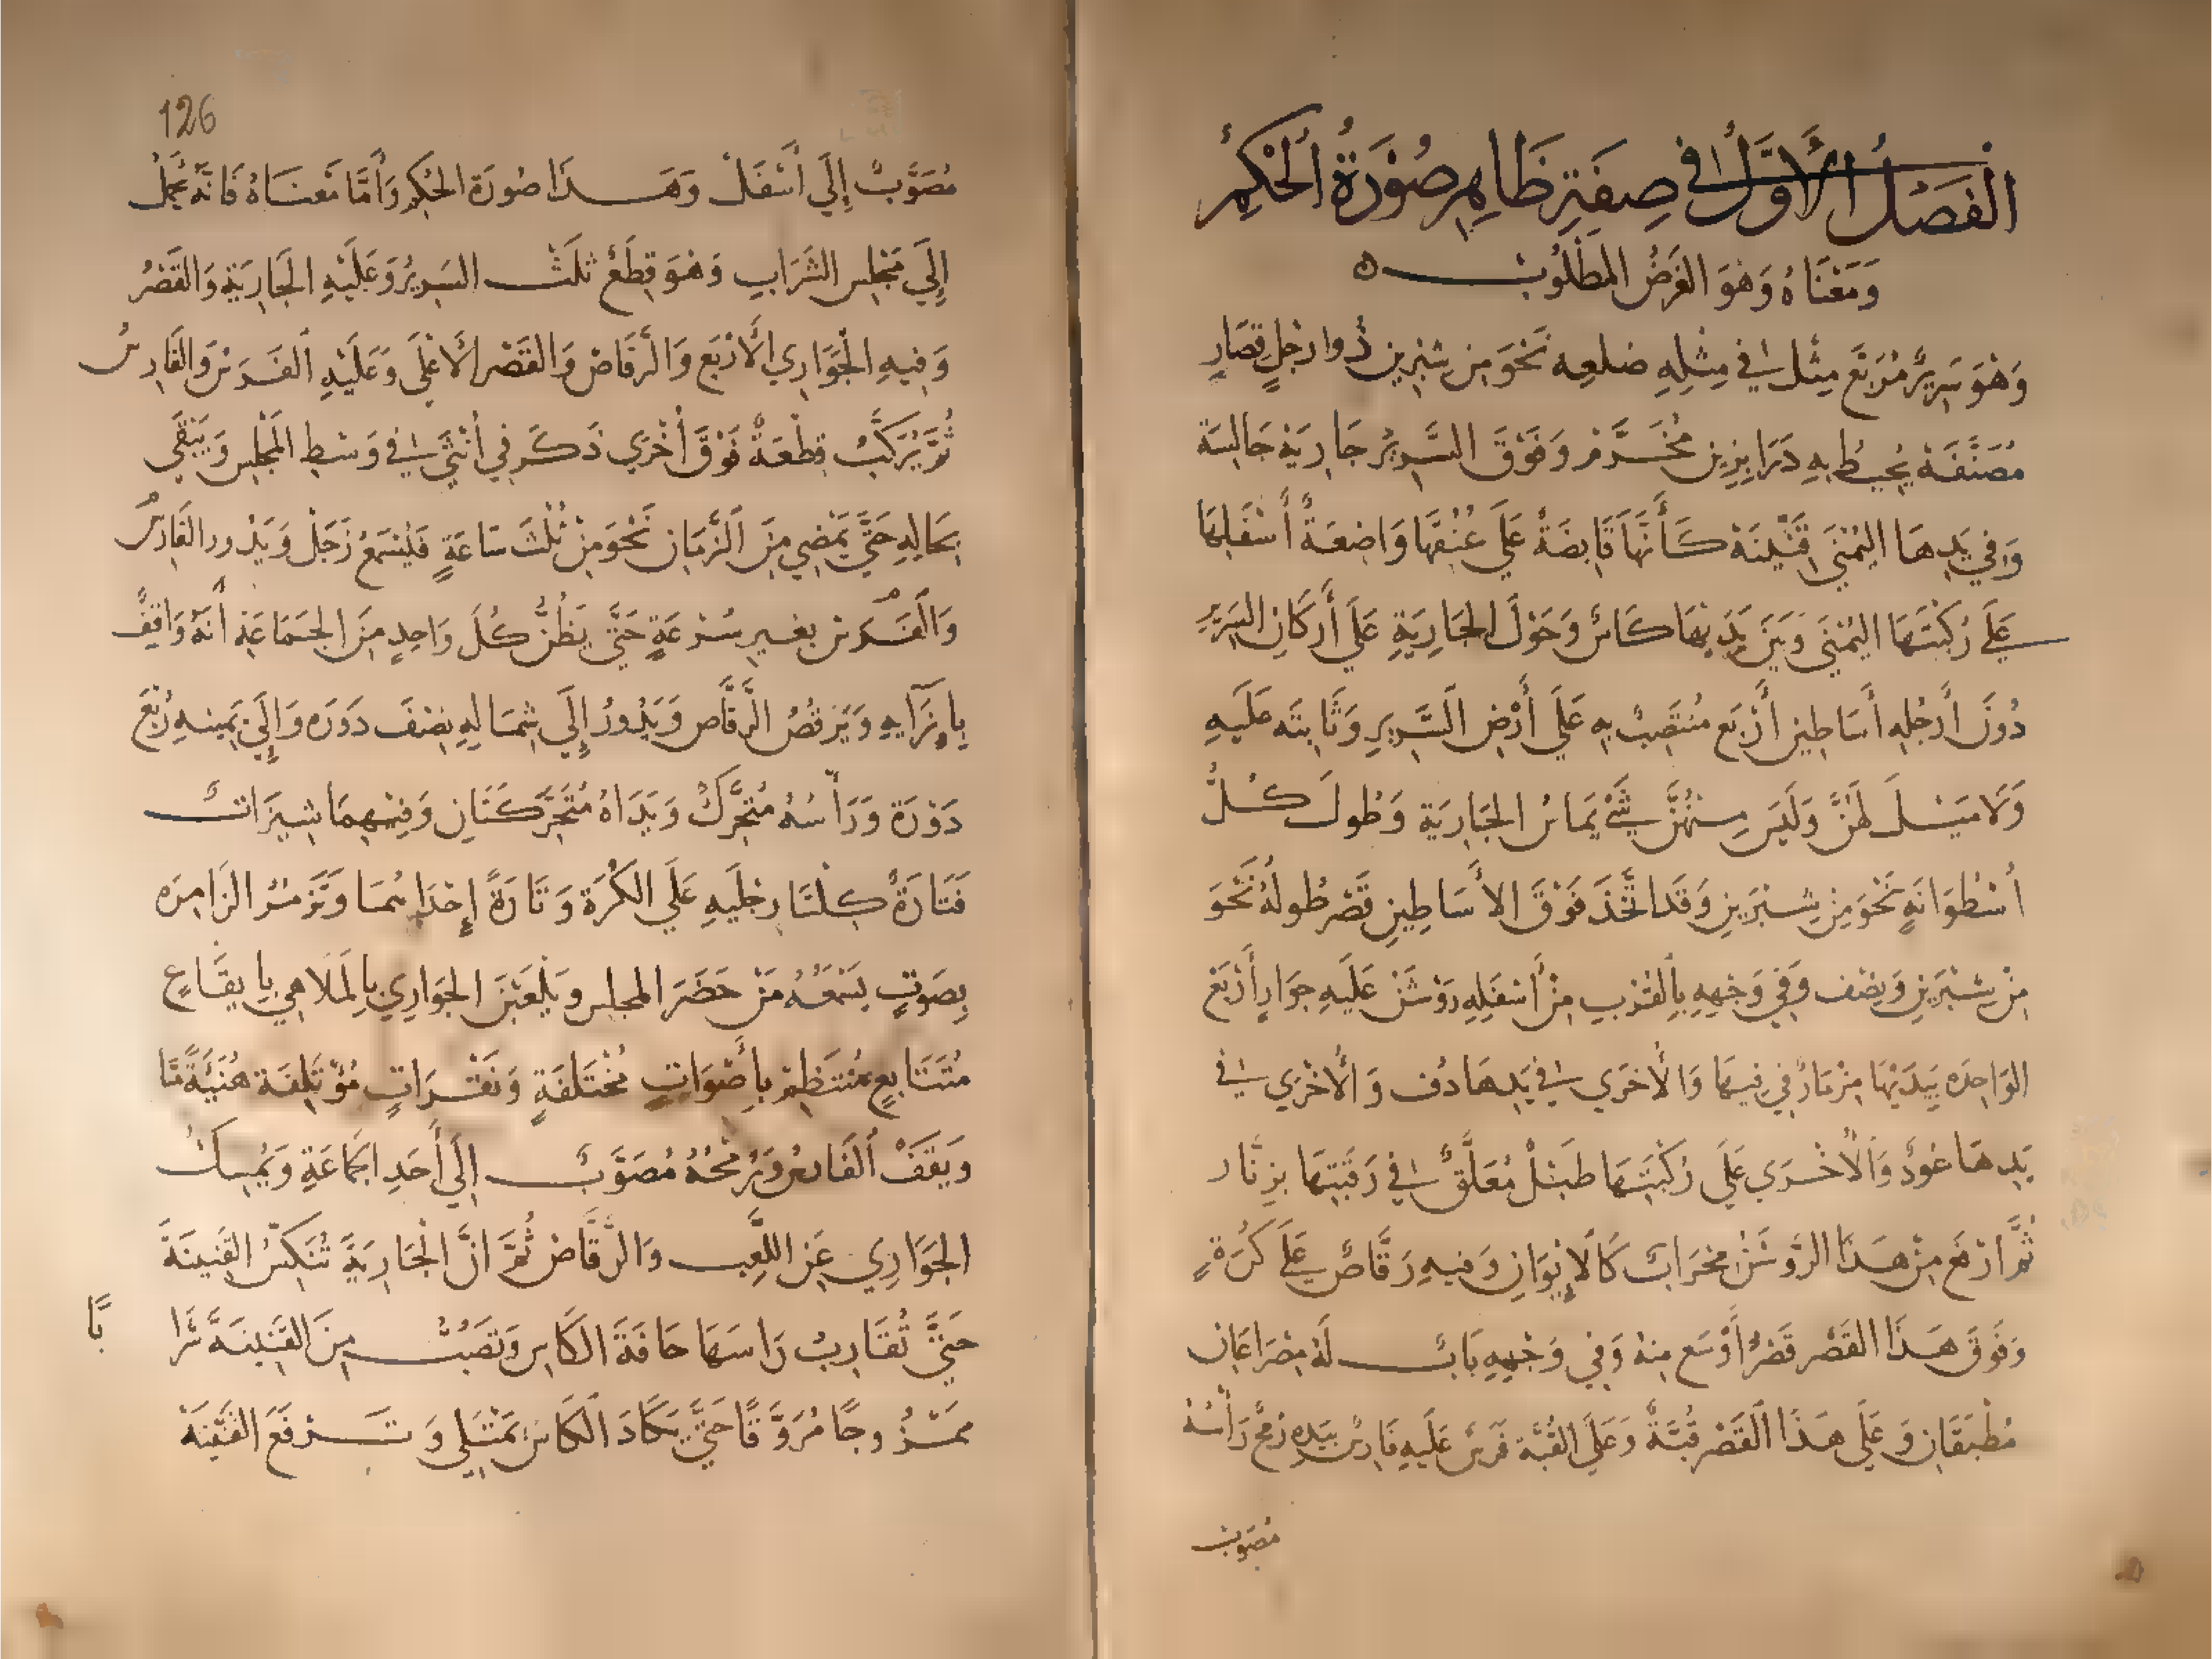 الفَصْلُ الأَوَّلُ فِي صِفَةِ ظَاهِرِ صُوْرَةُ الحَكَمِ
وَمَعْنَاهُ وَهُوَ الغَرَضُ المَطْلُوبُ ه
وَهُوَ سَرِيْرٌ مُرَبَّع مِثْل فِي مِثْلِهِ ضلعه نَحْوَ مِن شِبْرين ذُوا رْجلٍ قصَارٍ
مُصَنَّفَة يُحيطُ بِهِ دَرَابِزِين مُخَرَّم وَفَوْقَ السَّرِيْر جَارِيَة جَالِسَة
وَفِي يَدِهَا اليُمْنَى قَنِّيْنَة كَأَنَّهَا قَابِضَةٌ عَلَى عُنُقِهَا وَاضِعَةٌ أَسْفَلِهَا
عَلَى رُكْبَتهَا اليُمْنَى وَبَيْنَ يَدَيْهَا كَاسٌ وَحَوْلَ الجَارِيَةِ عَلَى أَركَانِ السَّرِيْرِ
دُونَ أَرجُلِهِ أَسَاطِيْن أَرْبَع مُنْتَصِبُ بِهِ عَلَى أَرْضِ السَّرِيرِ وَثَابتَه عَلَيهِ
وَلَا مَيْلَ لَهُنَّ وَلَيْسَ مِنْهُنَّ شَيْءٌ يُمَاسُ الجَارِيَة وَطُولَ كُلُّ
أُسْطُوَانَةٍ نَحْوَ مِنْ شِبْرَينِ وَقَد اتَّخَذَ فَوْقَ الأَسَاطِيْنِ قَصْر طُولهُ نَحْوَ
مِنْ شِبْرَيْنِ وَنِصْف وَفِي وَجْهِهِ بِالْقُرْبِ مِنْ أَسْفَلِهِ رَوْشَنْ عَلَيهِ جَوَارٍ أَرْبَعْ
الوَاحِدَه بِيَدَيْهَا مِزْمَارٌ فِي فِيهَا وَالأُخرَى فِي يَدهَا دُف وَالأُخْرَى فِي
يَدِهَا عُودٌ وَالأُخْرَى عَلَى رُكْبَتهَا طَبْلٌ مُعَلَّقٌ فِي رَقَبَتِهَا بِزنَّار
ثُمَّ ارْفَع مِنْ هَذَا الرَّوشَنْ مِحْرَابٌ كَالإِيْوَانِ وَفيهِ رَقَّاصٌ عَلَى كُرَةٍ
وَفَوقَ هَذَا القَصْر قَصْرٌ أَوْسَع مِنهُ وَفِي وَجْهِهِ بَابٌ لَهُ مِصْرَاعَان
مُطْبَقَانِ وَعَلَى هَذَا القَصْر قُبَّةٌ وَعَلَى القُبَّة فَرَسٌ عَلَيهِ فَارسٌ بيَدِهِ رُمحٌ رَأْسُهُ
مُصَوَّبٌ
126
مُصَوَّبٌ إِلَى أَسْفَلْ وَهَذَا صُورَة الحَكَمِ وَأَمَّا مَعْنَاهُ فَانَّهُ يُحْمَلُ
إِلَى مَجْلِس الشَّرَابِ وَهْوَ قِطَعْ ثَلَثْ السَرِيرُ وَعَلَيْهِ الجَارِيَة وَالقَصْرُ
وَفِيهِ الجَوَارِي الأَرْبَع وَالرَّقَاصْ وَالقَصْر الأَعْلَى وَعَلَيْهِ الفَرَسْ وَالفَارِسُ
ثُمَّ يُرَكَّبُ قِطْعَةٌ فَوْقَ أُخْرَى ذَكَر فِي أُنْثَى فِي وَسْط المَجْلِس وَيَبْقَى
بحَالِهِ حَتَّى يَمْضِي مِنَ الزَّمَان نَحْوَ مِنْ ثُلْثَ سَاعَةٍ فَلْيُسْمَعُ زَجَلْ وَيَدُور الفَارِسُ
وَالفَرَس بغَيرِ سُرْعَةٍ حَتَّى يَظُنُّ كُلَ وَاحِدٍ مِنَ الجَمَاعَة أنّهُ وَاقِفٌ
بِإزَآيهِ وَيَرقُصُ الرَّقَّاص وَيَدُورُ إِلَى شِمَالِهِ نِصْفَ دَورَه وَإِلَى يَمِينهِ رُبْعَ
دَوْرَة وَرَأْسُهُ مُتَحَرِّكٌ وَيَدَاهُ مُتَحَرِّكَتَانِ وَفيْهِمَا شِيزَاتٌ
فَتَارَةً كِلْتَا رِجْلَيهِ عَلَى الكُرَة وَتَارَةً إِحْدَاهُمَا وَتَزمُرُ الزَامِرَه
بِصَوْتٍ يَسْمَعُهُ مَنْ حَضَرَ المجلس وَيَلْعَبْنَ الجَوَارِي بِالمَلَاهِي بِإِيقَاعٍ
مُتَتَابِعٍ مُنْتَظِمٍ بأَصْوَاتٍ مُخْتَلفَةٍ وَنَقْرَاتٍ مُؤْتَلِفَة هُنَيَّةً مَّا
وَيَقَفْ الفَارسُ وَرُمْحُهُ مُصَوَّبٌ إِلَى أَحَدِ الجَمَاعَةِ وَيُمسِكُ
الجَوَارِي عَنِ اللَّعِب وَالرَّقَّاصْ ثُمَّ انَّ الجَارِيَةَ تُنَكِّسُ القَنِينَةَ
حَتَّى تُقَارِبُ رَاسَهَا حَافَةَ الكَاسِ وَتَصُبُّ مِنَ القَنِينَةَ شَرَا بًا
مَمْزُوجًا مُرَوَّقًا حَتَّى يَكَادَ الكَاسْ يَمْتَلِي وَ تَرْفَعَ القَنِّينَة